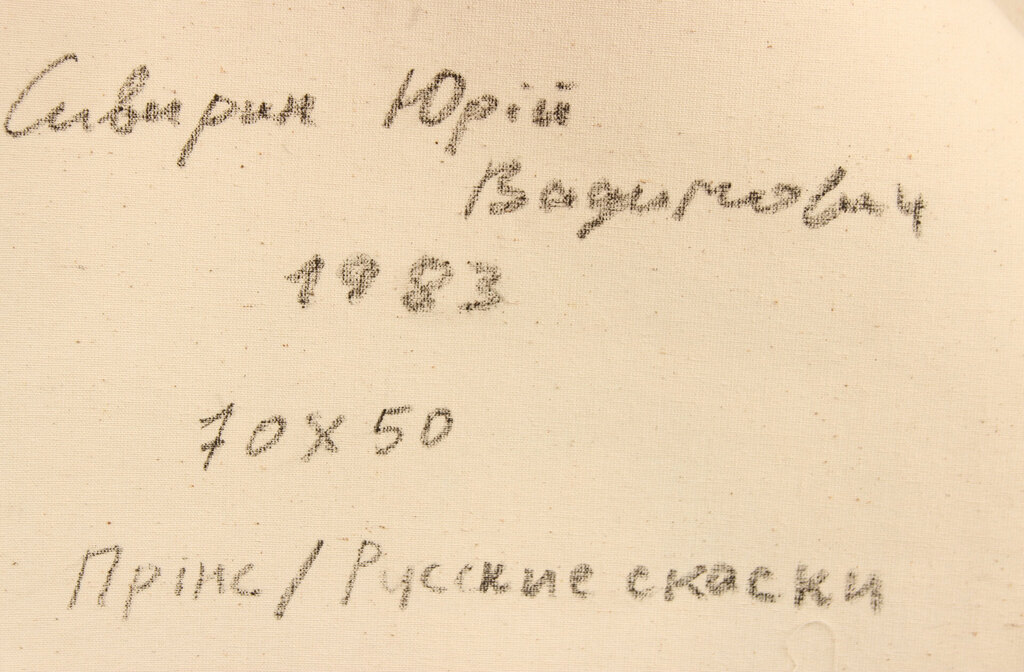 Сивирин Юрій
Вадимович
1983
70х50
Прінс/Русские скаски